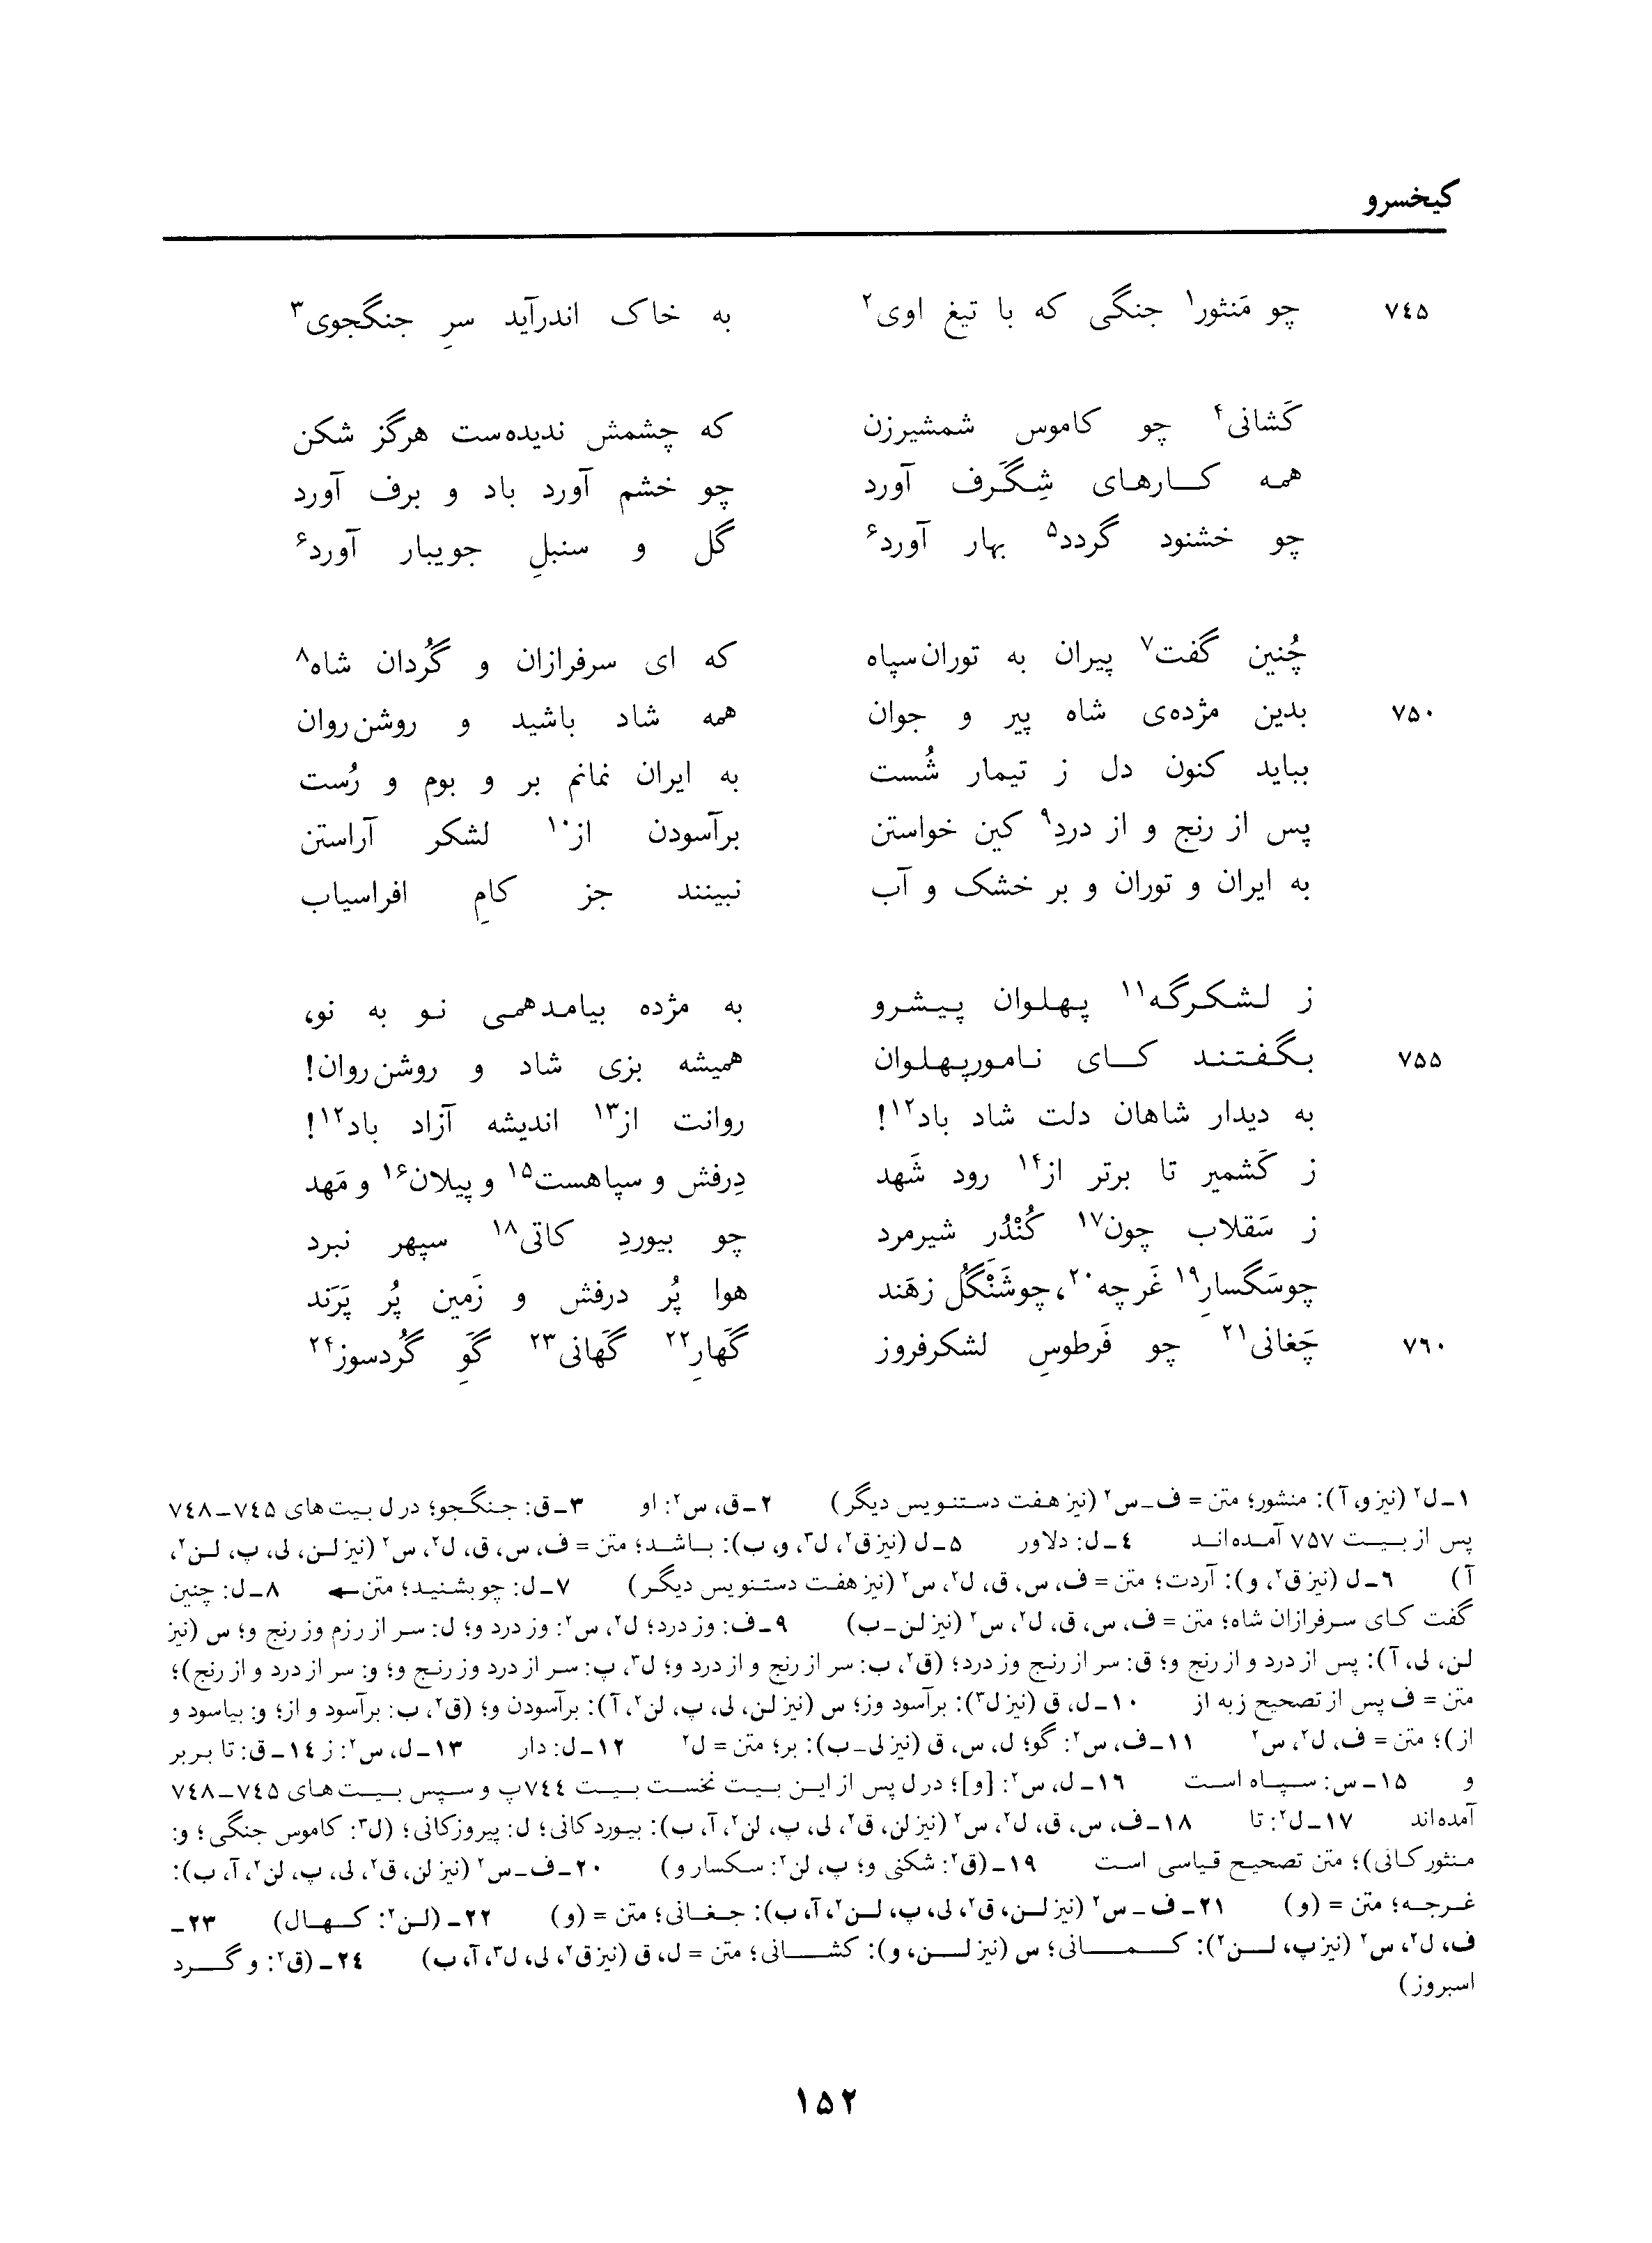 کیخسرو
۷۴۵ چو مَنثور۱ جنگی که با تیغ اوی۲ به خاک اندرآید سرِ جنگجوی۳
کَشانی۴ چو کاموس شمشیرزن که چشمش ندیده‌ست هرگز شکن
همه کارهای شِگَرف آورد چو خشم آورد باد و برف آورد
چو خشنود گردد۵ بهار آورد۶ گل و سنبلِ جویبار آورد۶
چُنین گفت۷ پیران به توران‌سپاه که ای سرفرازان و گُردان شاه۸
۷۵۰ بدین مژده‌ی شاه پیر و جوان همه شاد باشید و روشن‌روان
بباید کنون دل ز تیمار شُست به ایران نمانم بر و بوم و رُست
پس از رنج و از دردِ۹ کین خواستن برآسودن از۱۰ لشکر آراستن
به ایران و توران و بر خشک و آب نبینند جز کامِ افراسیاب
ز لشکرگه۱۱ پهلوان پیشرو به مژده بیامدهمی نو به نو،
۷۵۵ بگفتند کای نامورپهلوان همیشه بزی شاد و روشن‌روان!
به دیدار شاهان دلت شاد باد۱۲! روانت از۱۳ اندیشه آزاد باد۱۲!
ز کَشمیر تا برتر از۱۴ رود شَهد دِرفش و سپاهست۱۵ و پیلان۱۶ و مَهد
ز سَقلاب چون۱۷ کُنْدُر شیرمرد چو بیوردِ کاتی۱۸ سپهر نبرد
چوسَگسارِ۱۹ غَرچه۲۰، چوشَنْگُل زهَند هوا پُر درفش و زَمین پُر پَرَند
۷۶۰ چَغانی۲۱ چو فَرطوسِ لشکرفروز گَهارِ۲۲ گَهانی۲۳ گَوِ گُردسوز۲۴
۱ـ ل۲ (نیز و، آ): منشور؛ متن = ف ـ س۲ (نیز هفت دستنویس دیگر) ۲ـ ق، س۲: او ۳ـ ق: جنگجو؛ در ل بیت‌های ۷۴۵ـ۷۴۸
پس از بیت ۷۵۷ آمده‌اند ۴ـ ل: دلاور ۵ـ ل (نیز ق۲، ل۳، و، ب): باشد؛ متن = ف، س، ق، ل۲، س۲ (نیز لن، لی، پ، لن۲،
آ) ۶ـ ل (نیز ق۲، و): آردت؛ متن = ف، س، ق، ل۲، س۲ (نیز هفت دستنویس دیگر) ۷ـ ل: چو بشنید؛ متن← ۸ـ ل: چنین
گفت کای سرفرازان شاه؛ متن = ف، س، ق، ل۲، س۲ (نیز لن ـ ب) ۹ـ ف: وز درد؛ ل۲، س۲: وز درد و؛ ل: سر از رزم وز رنج و؛ س (نیز
لن، لی، آ): پس از درد و از رنج و؛ ق: سر از رنج وز درد؛ (ق۲، ب: سر از رنج و از درد و؛ ل۳، پ: سر از درد وز رنج و؛ و: سر از درد و از رنج)؛
متن = ف پس از تصحیح ز به از ۱۰ـ ل، ق (نیز ل۳): برآسود وز؛ س (نیز لن، لی، پ، لن۲، آ): برآسودن و؛ (ق۲، ب: برآسود و از؛ و: بیاسود و
از)؛ متن = ف، ل۲، س۲ ۱۱ـ ف، س۲: گو؛ ل، س، ق (نیز لی ـ ب): بر؛ متن = ل۲ ۱۲ـ ل: دار ۱۳ـ ل، س۲: ز ۱۴ـ ق: تا بربر
و ۱۵ـ س: سپاه است ۱۶ـ ل، س۲: [و]؛ در ل پس از این بیت نخست بیت ۷۴۴پ و سپس بیت‌های ۷۴۵ـ۷۴۸
آمده‌اند ۱۷ـ ل۲: تا ۱۸ـ ف، س، ق، ل۲، س۲ (نیز لن، ق۲، لی، پ، لن۲، آ، ب): بیورد کانی؛ ل: پیروزکانی؛ (ل۳: کاموس جنگی؛ و:
منثور کانی)؛ متن تصحیح قیاسی است ۱۹ـ (ق۲: شکنی و؛ پ، لن۲: سکسار و) ۲۰ـ ف ـ س۲ (نیز لن، ق۲، لی، پ، لن۲، آ، ب):
غرجه؛ متن = (و) ۲۱ـ ف ـ س۲ (نیز لن، ق۲، لی، پ، لن۲، آ، ب): جغانی؛ متن = (و) ۲۲ـ (لن۲: کهال) ۲۳ـ
ف، ل۲، س۲ (نیز پ، لن۲): کمانی؛ س (نیز لن، و): کشانی؛ متن = ل، ق (نیز ق۲، لی، ل۳، آ، ب) ۲۴ـ (ق۲: و گرد
اسبروز)
۱۵۲